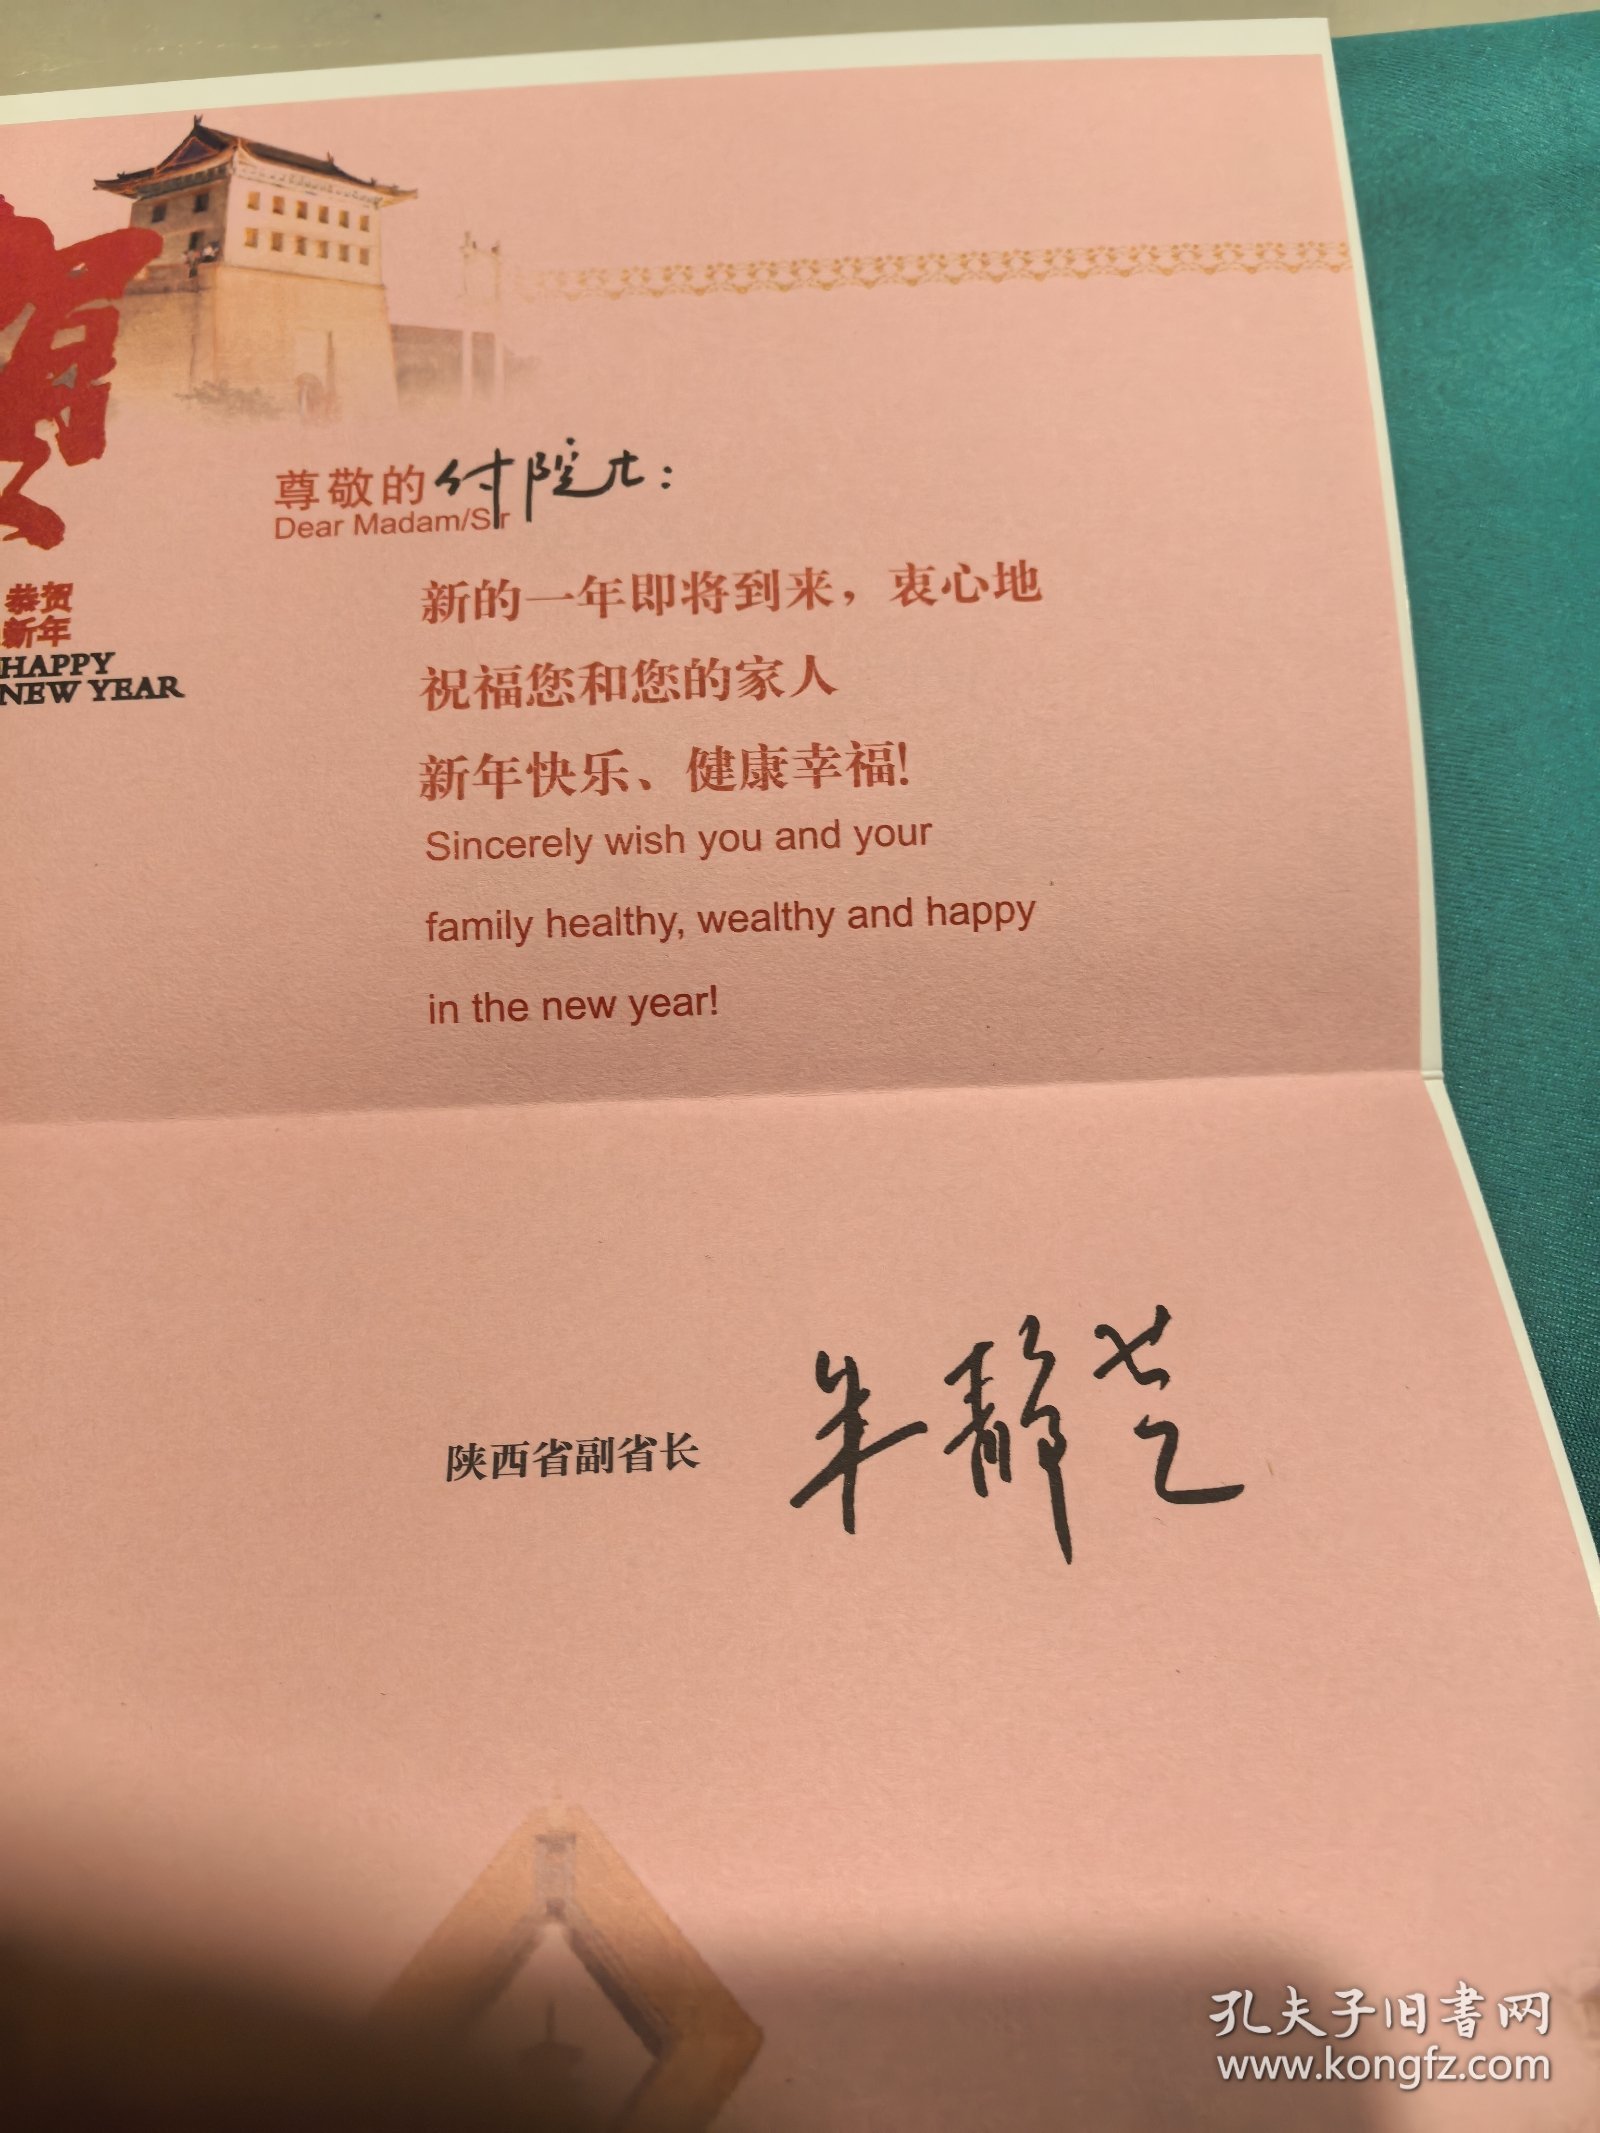 贺
恭贺
新年
HAPPY
NEW YEAR
尊敬的付院士：
Dear Madam/Sir
新的一年即将到来，衷心地
祝福您和您的家人
新年快乐、健康幸福！
Sincerely wish you and your
family healthy, wealthy and happy
in the new year!
陕西省副省长 朱静芝
孔夫子旧书网
www.kongfz.com